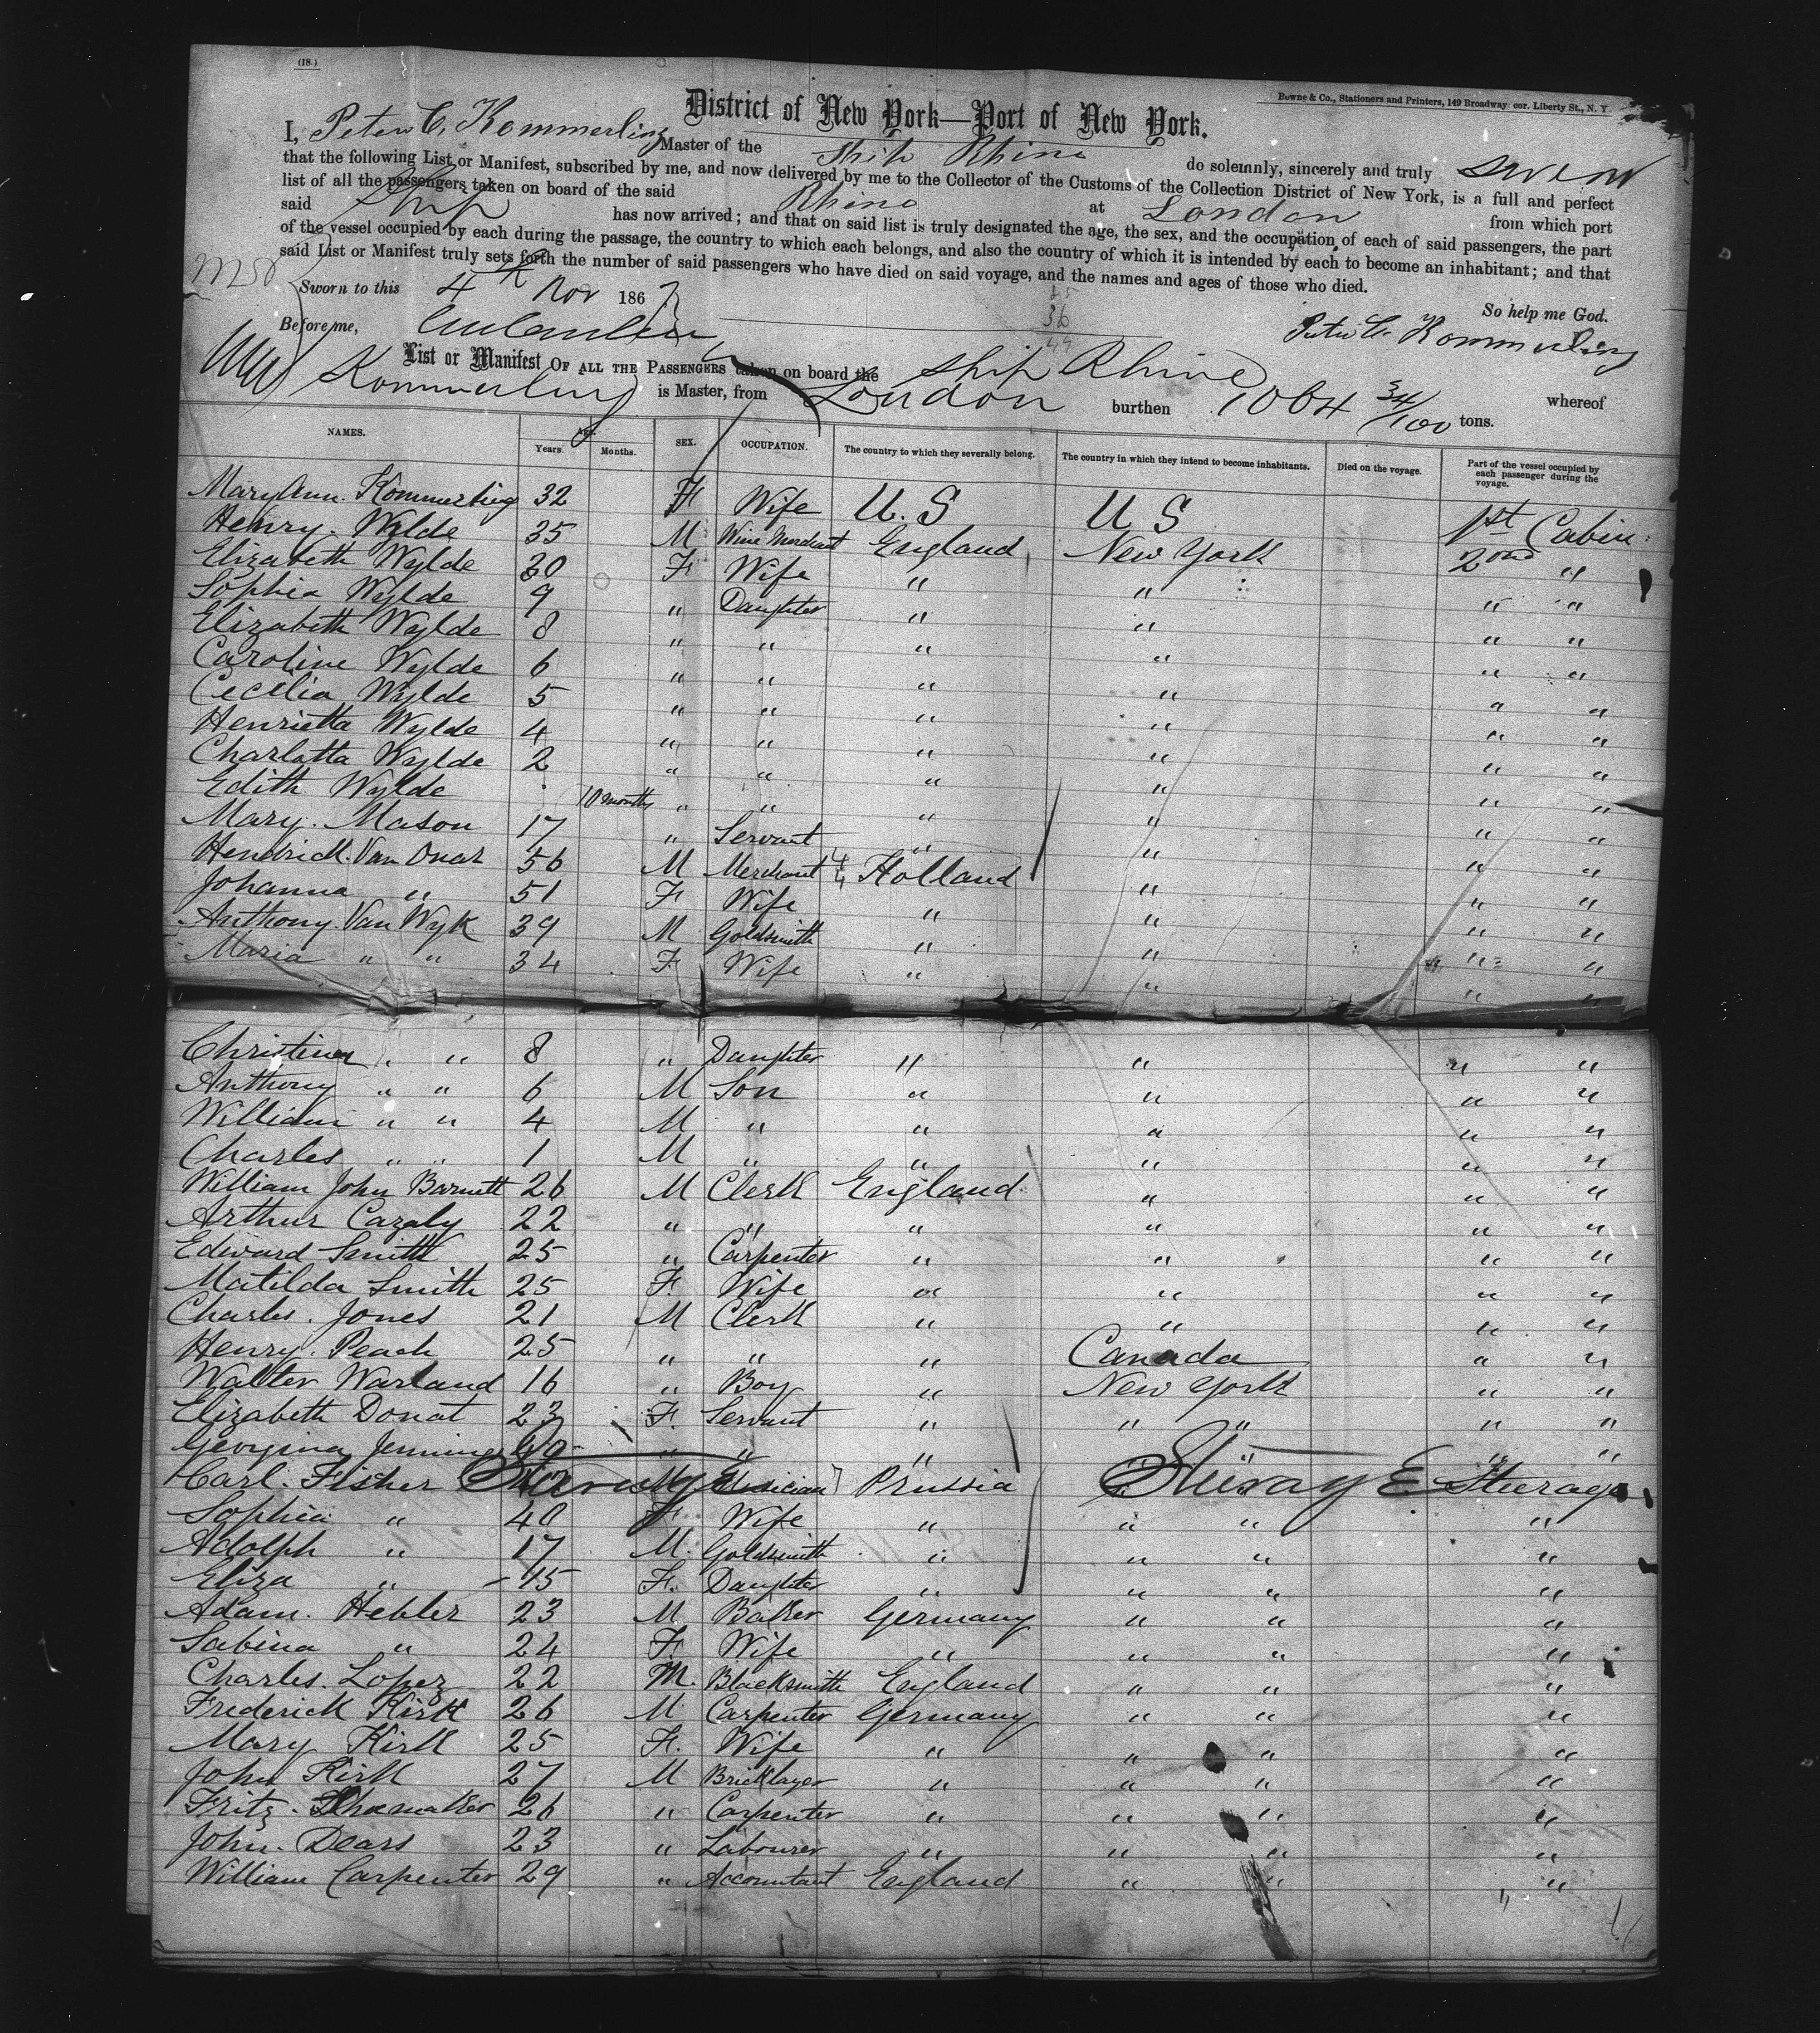 (18.)
Bowne & Co., Stationers and Printers, 149 Broadway cor. Liberty St., N. Y.
District of New York—Port of New York.
I, Peter C. Kommerling Master of the Ship Rhine do solemnly, sincerely and truly swear
that the following List or Manifest, subscribed by me, and now delivered by me to the Collector of the Customs of the Collection District of New York, is a full and perfect
list of all the passengers taken on board of the said Rhine at London from which port
said Ship has now arrived; and that on said list is truly designated the age, the sex, and the occupation of each of said passengers, the part
of the vessel occupied by each during the passage, the country to which each belongs, and also the country of which it is intended by each to become an inhabitant; and that
said List or Manifest truly sets forth the number of said passengers who have died on said voyage, and the names and ages of those who died.
So help me God.
Sworn to this 4th Nov 1867
36
Before me,
Peter C. Kommerling
List or Manifest OF ALL THE PASSENGERS taken on board the Ship Rhine whereof
Kommerling is Master, from London burthen 1064 34/100 tons.
NAMES. Age. Years. Months. SEX. OCCUPATION. The country to which they severally belong. The country in which they intend to become inhabitants. Died on the voyage. Part of the vessel occupied by each passenger during the voyage.
Mary Ann. Kommerling 32 F Wife U.S U S 1st Cabin
Henry. Wylde 35 M Wine Merchant England New York 2nd "
Elizabeth Wylde 30 F Wife " " " "
Sophia Wylde 9 " Daughter " " " "
Elizabeth Wylde 8 " " " " " "
Caroline Wylde 6 " " " " " "
Cecelia Wylde 5 " " " " " "
Henrietta Wylde 4 " " " " " "
Charlotta Wylde 2 " " " " " "
Edith Wylde 10 months " " " " " "
Mary. Mason 17 " Servant " " " "
Hendrick. Van 56 M Merchant Holland " " "
Johanna " 51 F Wife " " " "
Anthony. Van Wyk 39 M Goldsmith " " " "
Maria " " 34 F Wife " " " "
Christina " " 8 " Daughter " " " "
Anthony " " 6 M Son " " " "
William " " 4 M " " " " "
Charles " " 1 M " " " " "
William John Barnett 26 M Clerk England " " "
Arthur Cazaly 22 " " " " " "
Edward Smith 25 " Carpenter " " " "
Matilda Smith 25 F. Wife " " " "
Charles. Jones 21 M Clerk " " " "
Henry. Peach 25 " " " Canada " "
Walter Warland 16 " Boy " New York " "
Elizabeth Donat 23 F. Servant " " " " "
Georgina Jennings " " " " "
Carl. Fisher Steerage M Musician Prussia Steerage Steerage
Sophia " 40 F Wife " " " "
Adolph " 17 M. Goldsmith " " " "
Eliza " 15 F. Daughter " " " "
Adam. Hebler 23 M Baker Germany " " "
Sabina " 24 F. Wife " " " "
Charles. Loper 22 M. Blacksmith England " " "
Frederick Kirk 26 M Carpenter Germany " " "
Mary Kirk 25 F. Wife " " " "
John Kirk 27 M Bricklayer " " " "
Fritz. Shoemaker 26 " Carpenter " " " "
John. Dears 23 " Labourer " " " "
William Carpenter 29 " Accountant England " " "